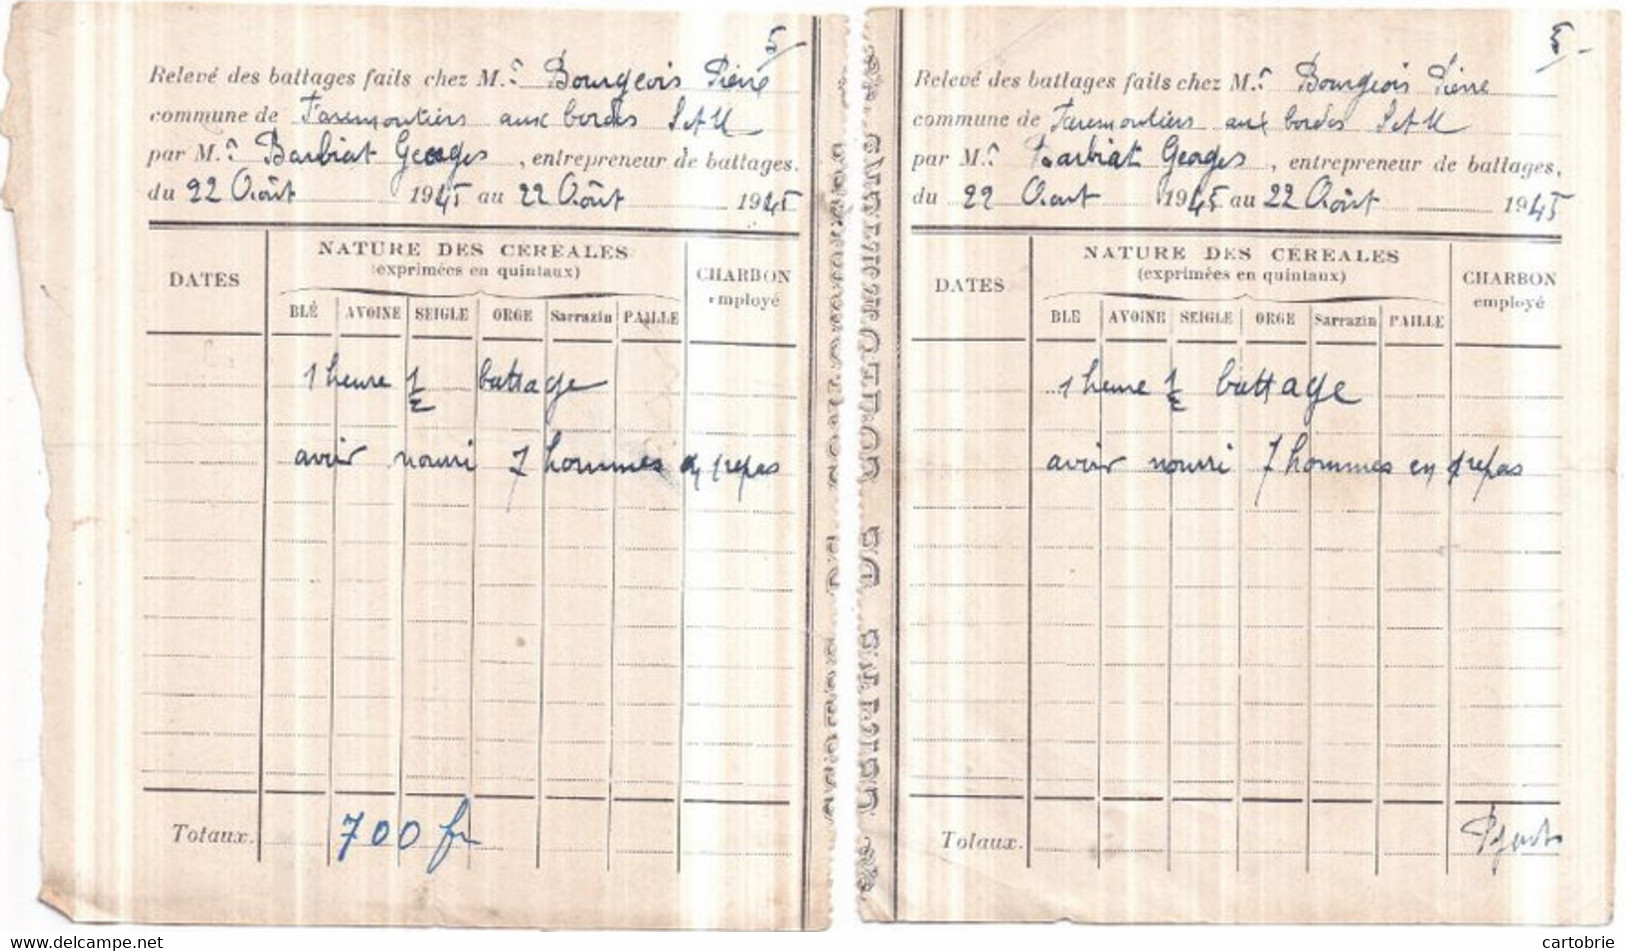 5
Relevé des battages faits chez M.r Bourgeois Pierre
commune de Faremoutiers aux bordes S et M
par M.r Barbiat Georges, entrepreneur de battages.
du 22 Août 1945 au 22 Août 1945
DATES
NATURE DES CEREALES
(exprimées en quintaux)
CHARBON
employé
BLÉ AVOINE SEIGLE ORGE Sarrazin PAILLE
1 heure 1/2 battage
avoir nourri 7 hommes en 1 repas
Totaux. 700 fr
5
Relevé des battages faits chez M.r Bourgeois Pierre
commune de Faremoutiers aux bordes S et M
par M.r Barbiat Georges, entrepreneur de battages,
du 22 Out 1945 au 22 Août 1945
DATES
NATURE DES CEREALES
(exprimées en quintaux)
CHARBON
employé
BLE AVOINE SEIGLE ORGE Sarrazin PAILLE
1 heure 1/2 battage
avoir nourri 7 hommes en 1 repas
Totaux.
cartobrie.www.delcampe.net
cartobrie